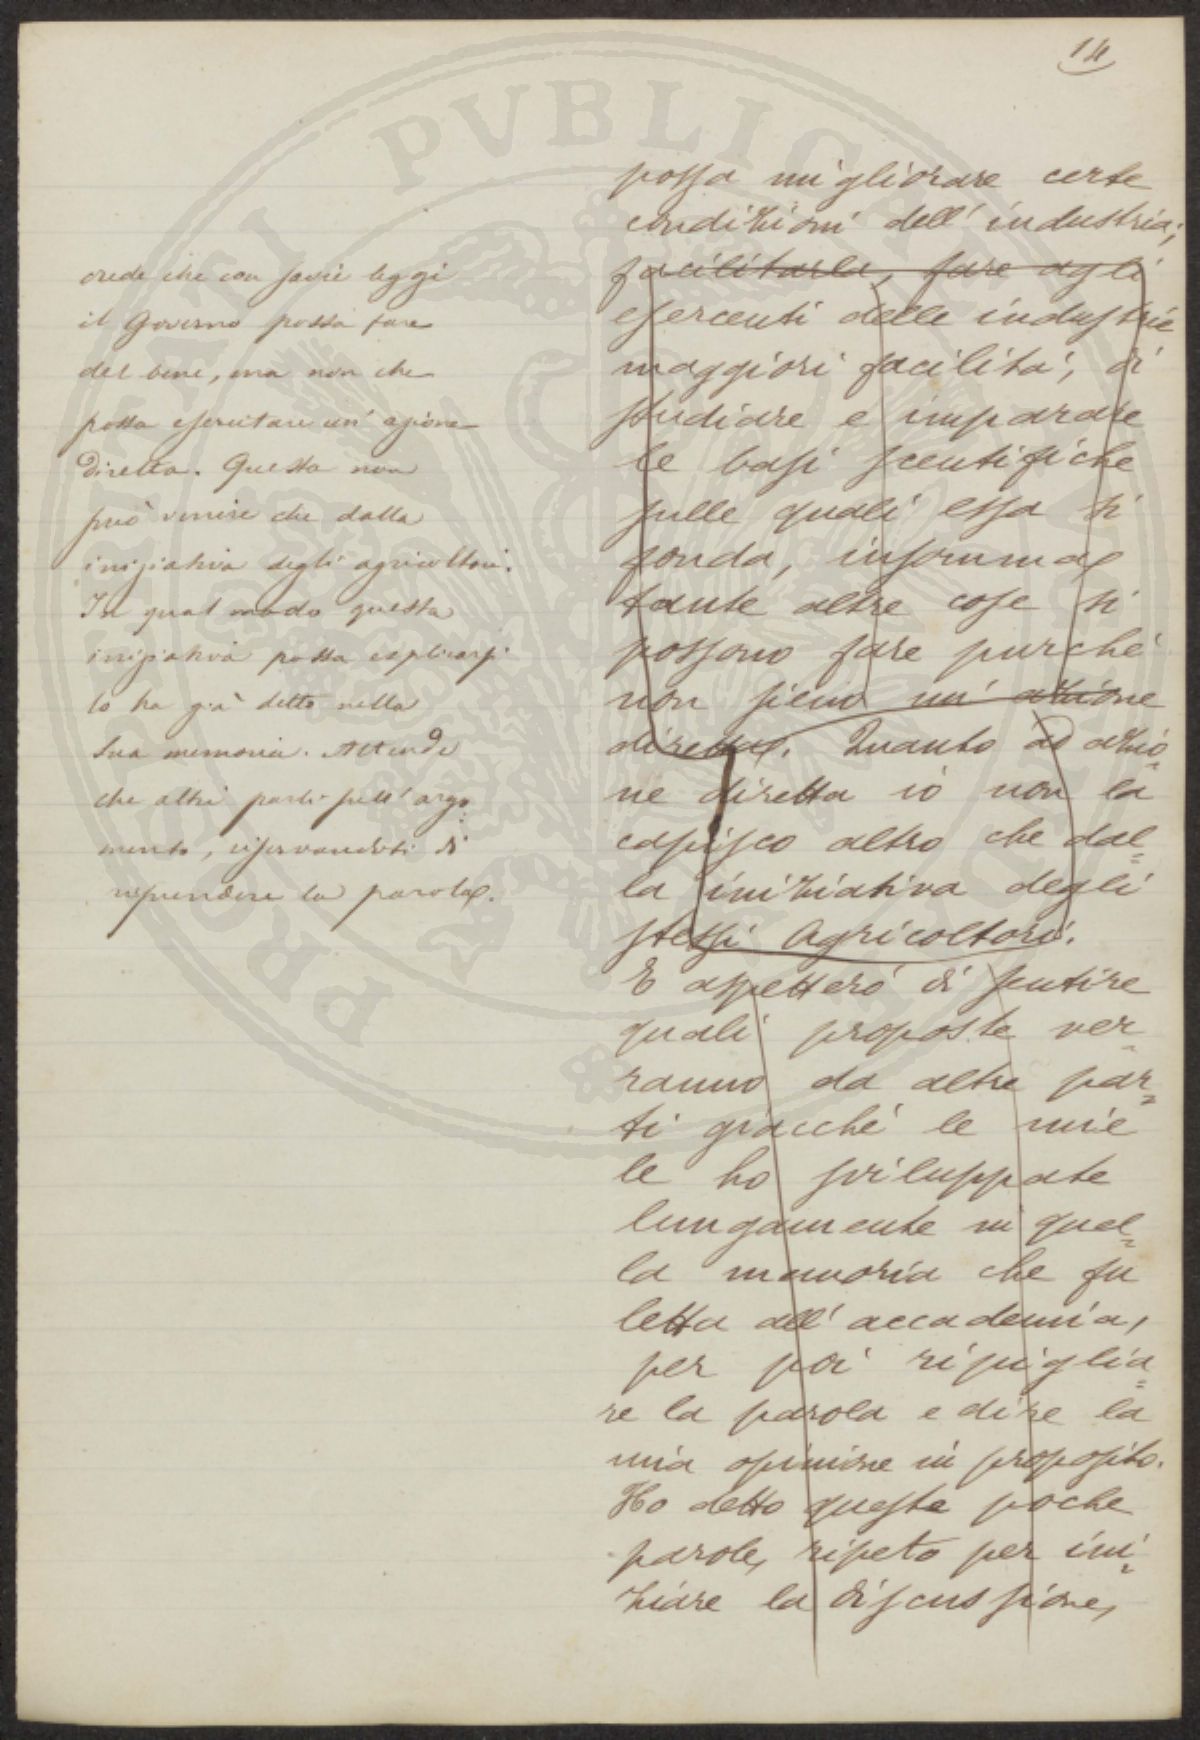 14
possa migliorare certe
condizioni dell' industria;
facilitarla, fare agli
esercenti delle industrie
maggiori facilità, di
studiare e imparare
le basi scentifiche
sulle quali essa si
fonda, insomma
tante altre cose si
possono fare purché
non sieno un' azione
diretta. Quanto ad azio=
ne diretta io non la
capisco altro che dal=
la iniziativa degli
stessi Agricoltori.
E aspetterò di sentire
quali proposte ver=
ranno da altre par=
ti giacché le mie
le ho sviluppate
lungamente in quel=
la memoria che fu
letta all' accademia,
per poi ripiglia=
re la parola e dire la
mia opinione in proposito.
Ho detto queste poche
parole, ripeto per ini=
ziare la discussione,
crede che con savie leggi
il Governo possa fare
del bene, ma non che
possa esercitare un' azione
diretta. Questa non
può venire che dalla
iniziativa degli agricoltori.
In qual modo questa
iniziativa possa esplicarsi
lo ha già detto nella
sua memoria. Attende
che altri parli sull' argo=
mento, riservandosi di
riprendere la parola.
PVBLICAE